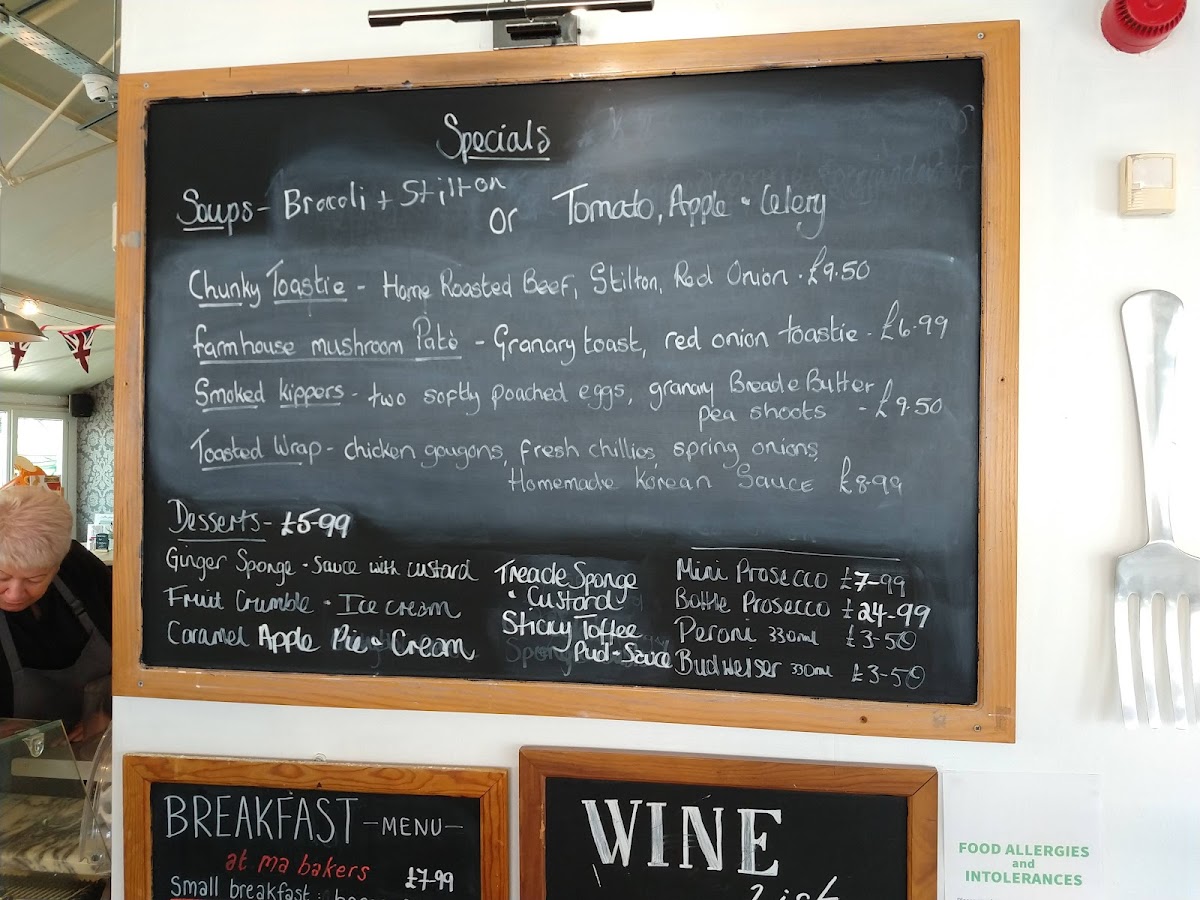 Specials
Soups - Brocoli + Stilton or Tomato, Apple + Celery
Chunky Toastie - Home Roasted Beef, Stilton, Red Onion . £9.50
farmhouse mushroom Patè - Granary toast, red onion toastie . £6.99
Smoked kippers - two softly poached eggs, granary Bread & Butter
pea shoots - £9.50
Toasted Wrap - chicken gougons, fresh chillies, spring onions,
Homemade Korean Sauce £8.99
Desserts - £5-99
Ginger Sponge - Sauce with custard
Fruit Crumble - Ice cream
Caramel Apple Pie + Cream
Treacle Sponge
+ Custard
Sticky Toffee
Pud - Sauce
Mini Prosecco £7-99
Bottle Prosecco £24-99
Peroni 330ml £3-50
Budweiser 330ml £3-50
BREAKFAST - MENU -
at ma bakers
£7.99
Small breakfast :
WINE
List
FOOD ALLERGIES
and
INTOLERANCES